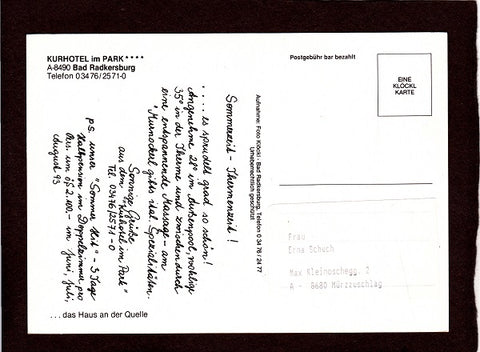 KURHOTEL im PARK ****
A-8490 Bad Radkersburg
Telefon 03476/2571-0
Sommerzeit - Thermenzeit !
.... es sprudelt grad so schön!
Angenehme 28° im Außenpool, wohlige
35° in der Therme und zwischendurch
eine entspannende Massage - am
"Murnockerl" gibts viel Spezialitäten.
Sonnige Grüße
aus dem "Kurhotel im Park"
Tel. 03476/2571-0
p.s. unser "Sommer Hit" - 3 Tage
Halbpension im Doppelzimmer pro
Pers. um öS 2.100.- im Juni, Juli,
August 93
... das Haus an der Quelle
Aufnahme: Foto Klöckl - Bad Radkersburg, Telefon 0 34 76 / 24 77
Urheberrechtlich geschützt
Postgebühr bar bezahlt
EINE
KLÖCKL
KARTE
Frau
Erna Schuch
Max Kleinoschegg. 2
A - 8680 Mürzzuschlag